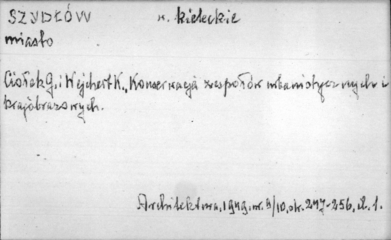 SZYDŁÓW w. kieleckie
miasto
Ciołek G., i Wejchert K., Konserwacja zespołów urbanistycznych i
krajobrazowych.
Architektura, 1949, nr. 9/10, str. 247-256, il. 1.